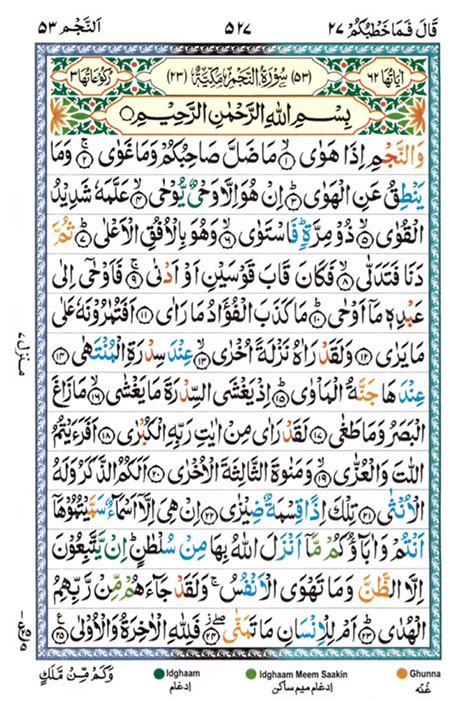 قَالَ فَمَا خَطْبُكُمْ ٢٧
٥٢٧
اَلنَّجْم ٥٣
اٰيَاتُهَا ٦٢
(٥٣) سُوْرَةُ النَّجْمِ مَكِّيَّةٌ (٢٣)
رُكُوْعَاتُهَا ٣
بِسْمِ اللّٰهِ الرَّحْمٰنِ الرَّحِيْمِ
وَالنَّجْمِ اِذَا هَوٰى ۙ‏﴿۱﴾ مَا ضَلَّ صَاحِبُكُمْ وَمَا غَوٰى ۚ‏﴿۲﴾ وَمَا
يَنْطِقُ عَنِ الْهَوٰى ؕ‏﴿۳﴾ اِنْ هُوَ اِلَّا وَحْىٌ يُّوْحٰى ۙ‏﴿۴﴾ عَلَّمَهٗ شَدِيْدُ
الْقُوٰى ۙ‏﴿۵﴾ ذُوْ مِرَّةٍ ؕ فَاسْتَوٰى ۙ‏﴿۶﴾ وَهُوَ بِالْاُفُقِ الْاَعْلٰى ؕ‏﴿۷﴾ ثُمَّ
دَنَا فَتَدَلّٰى ۙ‏﴿۸﴾ فَكَانَ قَابَ قَوْسَيْنِ اَوْ اَدْنٰى ۚ‏﴿۹﴾ فَاَوْحٰۤى اِلٰى
عَبْدِهٖ مَاۤ اَوْحٰى ؕ‏﴿۱۰﴾ مَا كَذَبَ الْفُؤَادُ مَا رَاٰى‏﴿۱۱﴾ اَفَتُمٰرُوْنَهٗ عَلٰى
مَا يَرٰى‏﴿۱۲﴾ وَلَقَدْ رَاٰهُ نَزْلَةً اُخْرٰى ۙ‏﴿۱۳﴾ عِنْدَ سِدْرَةِ الْمُنْتَهٰى‏﴿۱۴﴾
عِنْدَهَا جَنَّةُ الْمَاْوٰى ؕ‏﴿۱۵﴾ اِذْ يَغْشَى السِّدْرَةَ مَا يَغْشٰى ۙ‏﴿۱۶﴾ مَا زَاغَ
الْبَصَرُ وَمَا طَغٰى‏﴿۱۷﴾ لَقَدْ رَاٰى مِنْ اٰيٰتِ رَبِّهِ الْكُبْرٰى‏﴿۱۸﴾ اَفَرَءَيْتُمُ
اللّٰتَ وَالْعُزّٰى ۙ‏﴿۱۹﴾ وَمَنٰوةَ الثَّالِثَةَ الْاُخْرٰى‏﴿۲۰﴾ اَلَكُمُ الذَّكَرُ وَلَهُ
الْاُنْثٰى‏﴿۲۱﴾ تِلْكَ اِذًا قِسْمَةٌ ضِيْزٰى‏﴿۲۲﴾ اِنْ هِىَ اِلَّاۤ اَسْمَآءٌ سَمَّيْتُمُوْهَاۤ
اَنْتُمْ وَاٰبَآؤُكُمْ مَّاۤ اَنْزَلَ اللّٰهُ بِهَا مِنْ سُلْطٰنٍ ؕ اِنْ يَّتَّبِعُوْنَ
اِلَّا الظَّنَّ وَمَا تَهْوَى الْاَنْفُسُ ۚ وَلَقَدْ جَآءَهُمْ مِّنْ رَّبِّهِمُ
الْهُدٰى ؕ‏﴿۲۳﴾ اَمْ لِلْاِنْسَانِ مَا تَمَنّٰى ۖ‏﴿۲۴﴾ فَلِلّٰهِ الْاٰخِرَةُ وَالْاُوْلٰى‏﴿۲۵﴾
منزل ٧
وَكَمْ مِّنْ مَّلَكٍ
Idghaam
ادغام
Idghaam Meem Saakin
ادغام میم ساکن
Ghunna
غُنّه